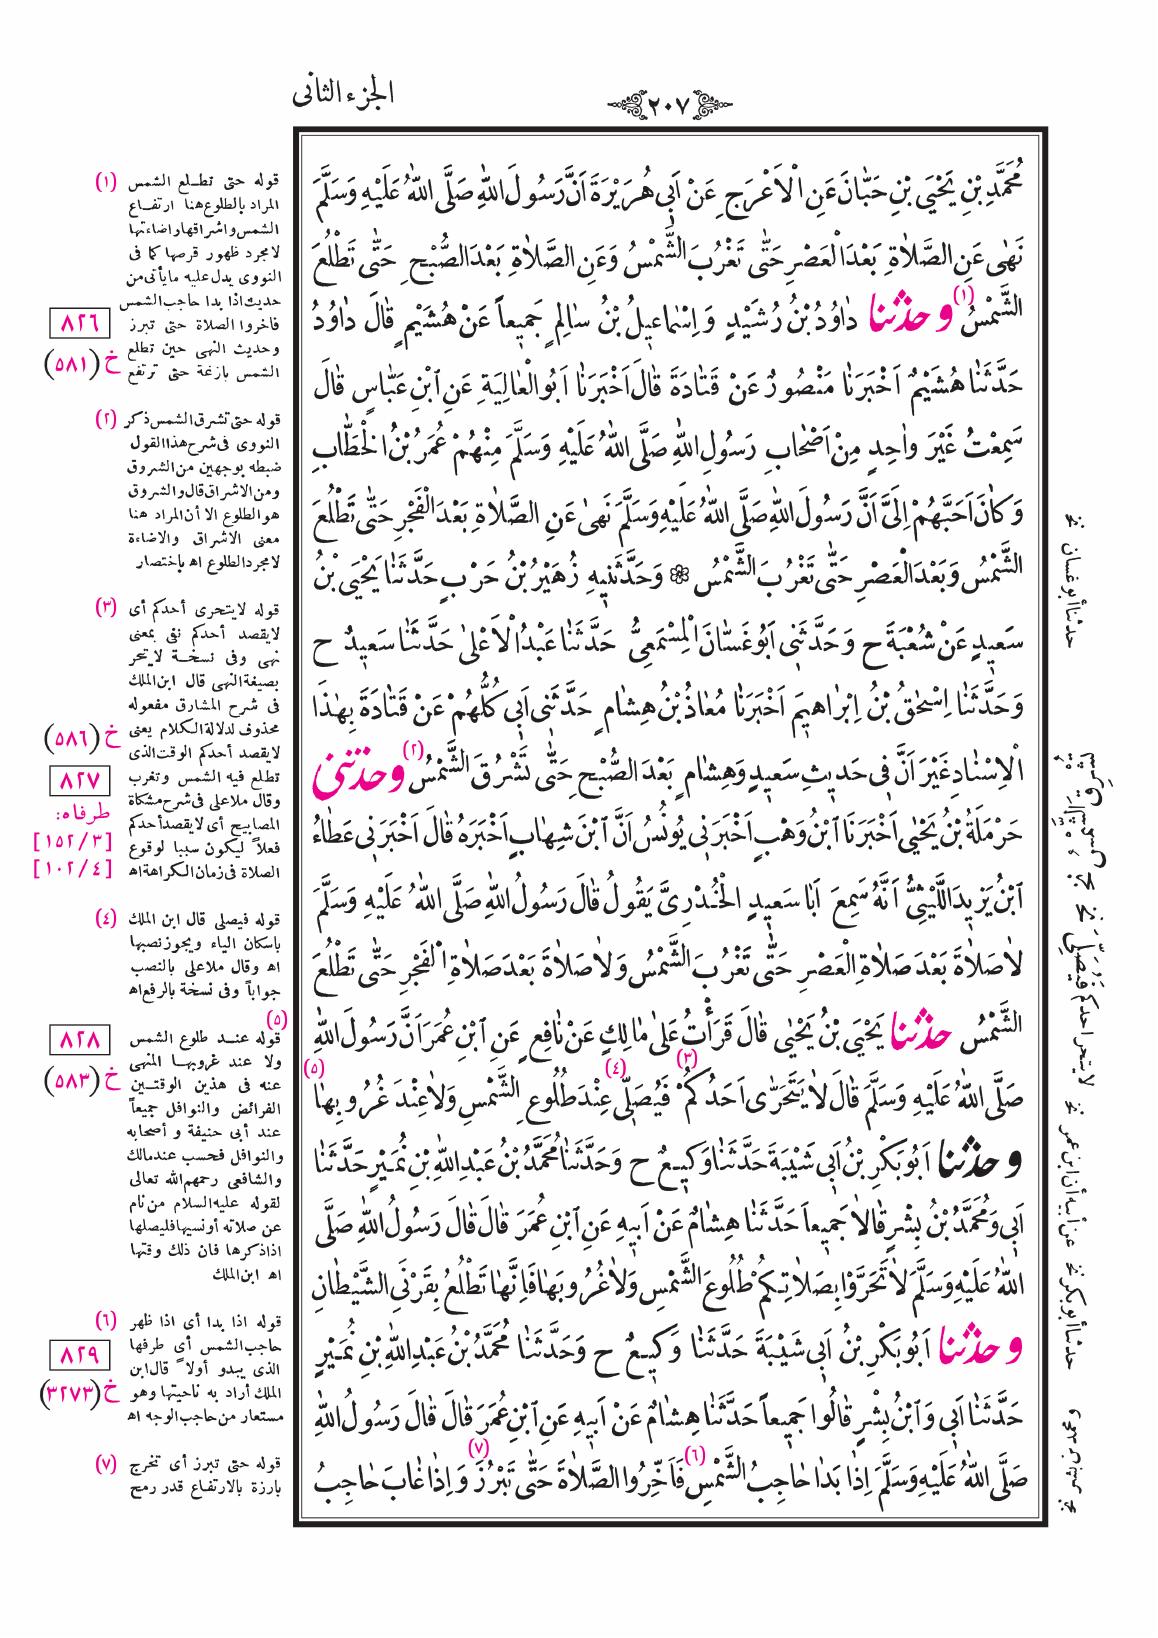 الجزء الثانى
٢٠٧
مُحَمَّدِ بْنِ يَحْيَى بْنِ حَبَّانَ عَنِ الْاَعْرَجِ عَنْ اَبِى هُرَيْرَةَ اَنَّ رَسُولَ اللّٰهِ صَلَّى اللّٰهُ عَلَيْهِ وَسَلَّمَ
نَهٰى عَنِ الصَّلَاةِ بَعْدَ الْعَصْرِ حَتّٰى تَغْرُبَ الشَّمْسُ وَعَنِ الصَّلَاةِ بَعْدَ الصُّبْحِ حَتّٰى تَطْلُعَ
الشَّمْسُ (١) وحدثنا دَاوُدُ بْنُ رُشَيْدٍ وَ اِسْمَاعِيلُ بْنُ سَالِمٍ جَمِيعاً عَنْ هُشَيْمٍ قَالَ دَاوُدُ
حَدَّثَنَا هُشَيْمٌ اَخْبَرَنَا مَنْصُورٌ عَنْ قَتَادَةَ قَالَ اَخْبَرَنَا اَبُو الْعَالِيَةِ عَنِ ابْنِ عَبَّاسٍ قَالَ
سَمِعْتُ غَيْرَ وَاحِدٍ مِنْ اَصْحَابِ رَسُولِ اللّٰهِ صَلَّى اللّٰهُ عَلَيْهِ وَسَلَّمَ مِنْهُمْ عُمَرُ بْنُ الْخَطَّابِ
وَكَانَ اَحَبَّهُمْ اِلَىَّ اَنَّ رَسُولَ اللّٰهِ صَلَّى اللّٰهُ عَلَيْهِ وَسَلَّمَ نَهٰى عَنِ الصَّلَاةِ بَعْدَ الْفَجْرِ حَتّٰى تَطْلُعَ
الشَّمْسُ وَبَعْدَ الْعَصْرِ حَتّٰى تَغْرُبَ الشَّمْسُ ۞ وَحَدَّثَنِيهِ زُهَيْرُ بْنُ حَرْبٍ حَدَّثَنَا يَحْيَى بْنُ
سَعِيدٍ عَنْ شُعْبَةَ ح وَحَدَّثَنِى اَبُو غَسَّانَ الْمِسْمَعِىُّ حَدَّثَنَا عَبْدُ الْاَعْلٰى حَدَّثَنَا سَعِيدٌ ح
وَحَدَّثَنَا اِسْحٰقُ بْنُ اِبْرَاهِيمَ اَخْبَرَنَا مُعَاذُ بْنُ هِشَامٍ حَدَّثَنِى اَبِى كُلُّهُمْ عَنْ قَتَادَةَ بِهٰذَا
الْاِسْنَادِ غَيْرَ اَنَّ فِى حَدِيثِ سَعِيدٍ وَهِشَامٍ بَعْدَ الصُّبْحِ حَتّٰى تَشْرُقَ الشَّمْسُ (٢) وحدثنى
حَرْمَلَةُ بْنُ يَحْيٰى اَخْبَرَنَا ابْنُ وَهْبٍ اَخْبَرَنِى يُونُسُ اَنَّ ابْنَ شِهَابٍ اَخْبَرَهُ قَالَ اَخْبَرَنِى عَطَاءُ
ابْنُ يَزِيدَ اللَّيْثِىُّ اَنَّهُ سَمِعَ اَبَا سَعِيدٍ الْخُدْرِىَّ يَقُولُ قَالَ رَسُولُ اللّٰهِ صَلَّى اللّٰهُ عَلَيْهِ وَسَلَّمَ
لَا صَلَاةَ بَعْدَ صَلَاةِ الْعَصْرِ حَتّٰى تَغْرُبَ الشَّمْسُ وَلَا صَلَاةَ بَعْدَ صَلَاةِ الْفَجْرِ حَتّٰى تَطْلُعَ
الشَّمْسُ حدثنا يَحْيَى بْنُ يَحْيٰى قَالَ قَرَأْتُ عَلٰى مَالِكٍ عَنْ نَافِعٍ عَنِ ابْنِ عُمَرَ اَنَّ رَسُولَ اللّٰهِ
صَلَّى اللّٰهُ عَلَيْهِ وَسَلَّمَ قَالَ لَا يَتَحَرّٰى اَحَدُكُمْ (٣) فَيُصَلِّى (٤) عِنْدَ طُلُوعِ الشَّمْسِ وَلَا عِنْدَ غُرُوبِهَا (٥)
وحدثنا اَبُو بَكْرِ بْنُ اَبِى شَيْبَةَ حَدَّثَنَا وَكِيعٌ ح وَحَدَّثَنَا مُحَمَّدُ بْنُ عَبْدِ اللّٰهِ بْنِ نُمَيْرٍ حَدَّثَنَا
اَبِى وَمُحَمَّدُ بْنُ بِشْرٍ قَالَا جَمِيعاً حَدَّثَنَا هِشَامٌ عَنْ اَبِيهِ عَنِ ابْنِ عُمَرَ قَالَ قَالَ رَسُولُ اللّٰهِ صَلَّى
اللّٰهُ عَلَيْهِ وَسَلَّمَ لَا تَحَرَّوْا بِصَلَاتِكُمْ طُلُوعَ الشَّمْسِ وَلَا غُرُوبَهَا فَاِنَّهَا تَطْلُعُ بِقَرْنَىِ الشَّيْطَانِ
وحدثنا اَبُو بَكْرِ بْنُ اَبِى شَيْبَةَ حَدَّثَنَا وَكِيعٌ ح وَحَدَّثَنَا مُحَمَّدُ بْنُ عَبْدِ اللّٰهِ بْنِ نُمَيْرٍ
حَدَّثَنَا اَبِى وَ ابْنُ بِشْرٍ قَالُوا جَمِيعاً حَدَّثَنَا هِشَامٌ عَنْ اَبِيهِ عَنِ ابْنِ عُمَرَ قَالَ قَالَ رَسُولُ اللّٰهِ
صَلَّى اللّٰهُ عَلَيْهِ وَسَلَّمَ اِذَا بَدَا حَاجِبُ الشَّمْسِ (٦) فَاَخِّرُوا الصَّلَاةَ حَتّٰى تَبْرُزَ (٧) وَ اِذَا غَابَ حَاجِبُ
(١) قوله حتى تطلع الشمس
المراد بالطلوع هنا ارتفاع
الشمس واشراقها واضاءتها
لا مجرد ظهور قرصها كما فى
النووى يدل عليه ما يأتى من
حديث اذا بدا حاجب الشمس
فاخروا الصلاة حتى تبرز
وحديث النهى حين تطلع
الشمس بازغة حتى ترتفع
(٢) قوله حتى تشرق الشمس ذكر
النووى فى شرح هذا القول
ضبطه بوجهين من الشروق
ومن الاشراق قال والشروق
هو الطلوع الا أن المراد هنا
معنى الاشراق والاضاءة
لا مجرد الطلوع اه باختصار
(٣) قوله لا يتحرى أحدكم أى
لا يقصد أحدكم نفى بمعنى
نهى وفى نسخة لا يتحر
بصيغة النهى قال ابن الملك
فى شرح المشارق مفعوله
محذوف لدلالة الكلام يعنى
لا يقصد أحدكم الوقت الذى
تطلع فيه الشمس وتغرب
وقال ملا على فى شرح مشكاة
المصابيح أى لا يقصد أحدكم
فعلاً ليكون سببا لوقوع
الصلاة فى زمان الكراهة اه
(٤) قوله فيصلى قال ابن الملك
باسكان الياء ويجوز نصبها
اه وقال ملا على بالنصب
جواباً وفى نسخة بالرفع اه
(٥)
قوله عند طلوع الشمس
ولا عند غروبها المنهى
عنه فى هذين الوقتين
الفرائض والنوافل جميعاً
عند أبى حنيفة و أصحابه
والنوافل فحسب عند مالك
والشافعى رحمهم الله تعالى
لقوله عليه السلام من نام
عن صلاته أو نسيها فليصلها
اذا ذكرها فان ذلك وقتها
اه ابن الملك
(٦) قوله اذا بدا أى اذا ظهر
حاجب الشمس أى طرفها
الذى يبدو أولاً قال ابن
الملك أراد به ناحيتها وهو
مستعار من حاجب الوجه اه
(٧) قوله حتى تبرز أى تخرج
بارزة بالارتفاع قدر رمح
٨٢٦
خ (٥٨١)
خ (٥٨٦)
٨٢٧
طرفاه:
[١٥٢/٣]
[١٠٢/٤]
٨٢٨
خ (٥٨٣)
٨٢٩
خ (٣٢٧٣)
حدثنا أبو غسان نخ
لا يتحر احدكم فيُصَلِّىَ نخ
حدثنا أبو بكر نخ عن أبيه أن ابن عمر نخ